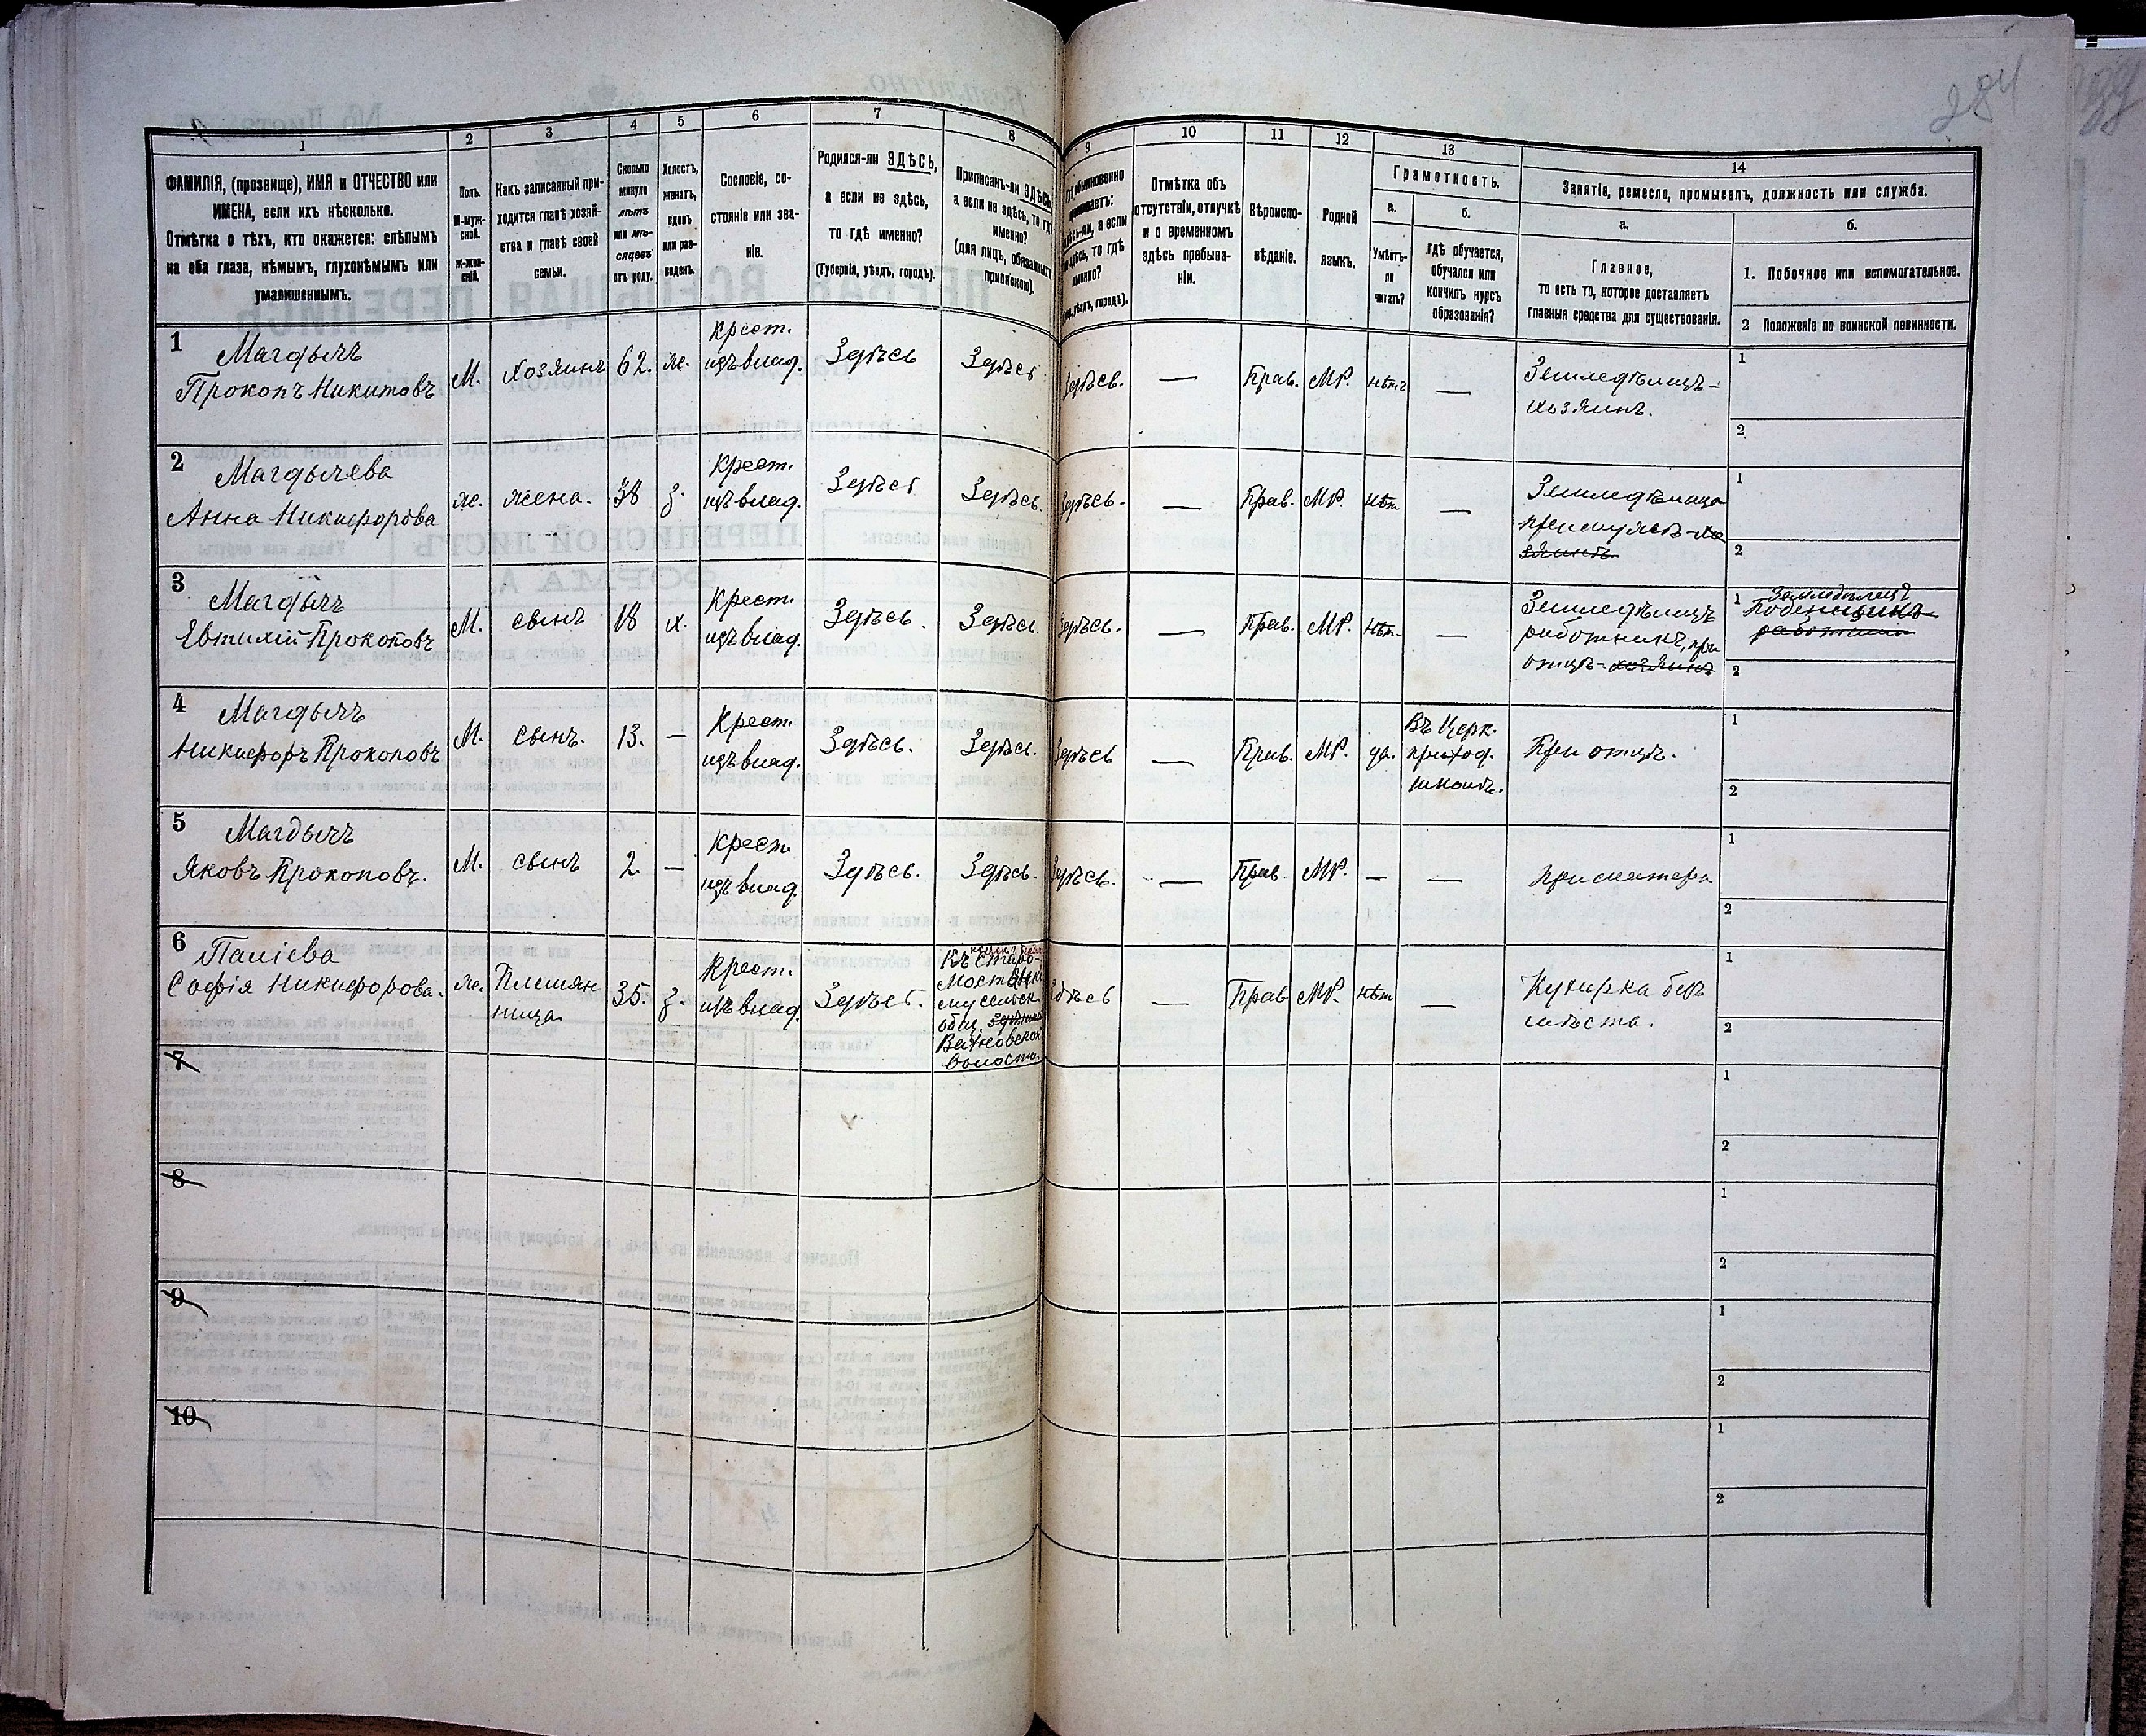 284
1 2 3 4 5 6 7 8 9 10 11 12 13 14
ФАМИЛІЯ, (прозвище), ИМЯ и ОТЧЕСТВО или
ИМЕНА, если ихъ нѣсколько.
Отмѣтка о тѣхъ, кто окажется: слѣпымъ
на оба глаза, нѣмымъ, глухонѣмымъ или
умалишеннымъ.
Полъ.
М-муж-
ской.
ж-жен-
скій.
Какъ записанный при-
ходится главѣ хозяй-
ства и главѣ своей
семьи.
Сколько
минуло
лѣтъ
или мѣ-
сяцевъ
отъ роду.
Холостъ,
женатъ,
вдовъ
или раз-
веденъ.
Сословіе, со-
стояніе или зва-
ніе.
Родился-ли ЗДѢСЬ,
а если не здѣсь,
то гдѣ именно?
(Губернія, уѣздъ, городъ).
Приписанъ-ли ЗДѢСЬ,
а если не здѣсь, то гдѣ
именно?
(для лицъ, обязанныхъ
припискою).
обыкновенно
проживаетъ:
здѣсь-ли, а если
не здѣсь, то гдѣ
именно?
уѣздъ, городъ).
Отмѣтка объ
отсутствіи, отлучкѣ
и о временномъ
здѣсь пребыва-
ніи.
Вѣроиспо-
вѣданіе.
Родной
языкъ.
Грамотность.
а.
Умѣетъ-
ли
читать?
б.
гдѣ обучается,
обучался или
кончилъ курсъ
образованія?
Занятія, ремесло, промыселъ, должность или служба.
а.
Главное,
то есть то, которое доставляетъ
главныя средства для существованія.
б.
1. Побочное или вспомогательное.
2 Положеніе по воинской повинности.
1 Магдычъ
Прокопъ Никитовъ
М. хозяинъ 62. ж.
Крест.
изъ влад.
Здѣсь Здѣсь Здѣсь. — Прав. МР. нѣтъ —
Земледѣлецъ-
хозяинъ.
1
2
2 Магдычева
Анна Никифорова
ж. жена. 38 з.
Крест.
изъ влад.
Здѣсь Здѣсь. Здѣсь. — Прав. МР. нѣт —
Земледѣлица
при мужѣ-хо
зяинѣ
1
2
3 Магдычъ
Евтихій Прокоповъ
М. сынъ 18 х.
Крест.
изъ влад.
Здѣсь. Здѣсь. Здѣсь. — Прав. МР. Нѣт. —
Земледѣлецъ
работникъ, при
отцѣ-хозяинѣ
1 Земледѣлецъ
Поденщикъ
2
4 Магдычъ
Никифоръ Прокоповъ
М. сынъ. 13. —
Крест.
изъ влад.
Здѣсь. Здѣсь. Здѣсь — Прав. МР. да.
Въ Церк.
приход.
школѣ.
При отцѣ.
1
2
5 Магдычъ
Яковъ Прокоповъ.
М. сынъ 2. —
Крест
изъ влад.
Здѣсь. Здѣсь. Здѣсь. — Прав. МР. — —
При матери
1
2
6 Паліева
Софія Никифорова.
ж. Племян
ница 35. з.
Крест.
изъ влад.
Здѣсь.
Къ Старо-
му сельск.
общ.
волости.
Здѣсь — Прав МР. нѣт —
Кухарка безъ
мѣста.
1
2
7
1
2
8
1
2
9
1
2
10
1
2